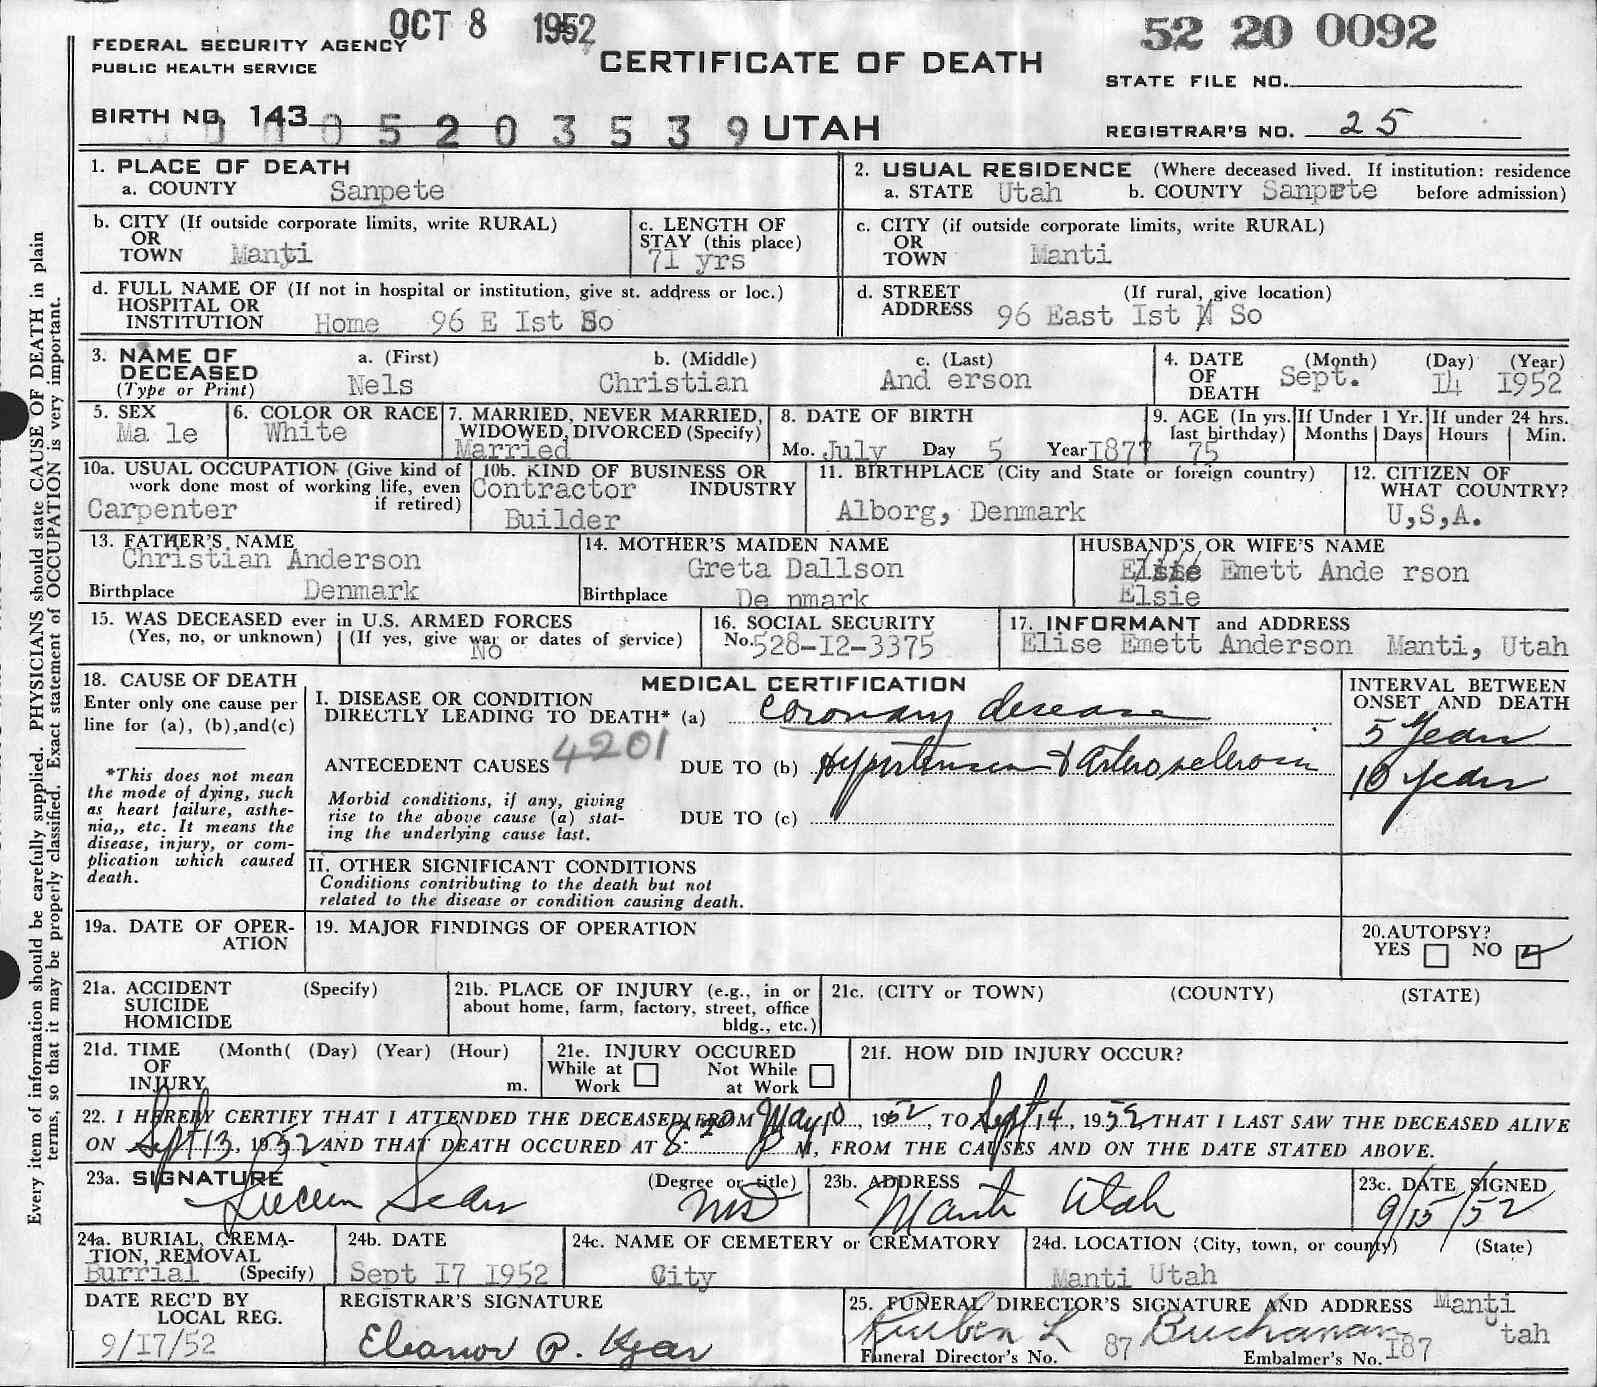 OCT 8 1952
52 20 0092
FEDERAL SECURITY AGENCY
PUBLIC HEALTH SERVICE
CERTIFICATE OF DEATH
STATE FILE NO.
BIRTH NO. 143
5 2 0 3 5 3 9 UTAH
REGISTRAR'S NO. 25
1. PLACE OF DEATH
a. COUNTY Sanpete
2. USUAL RESIDENCE (Where deceased lived. If institution: residence before admission)
a. STATE Utah b. COUNTY Sanpete
b. CITY (If outside corporate limits, write RURAL)
OR
TOWN Manti
c. LENGTH OF
STAY (this place)
71 yrs
c. CITY (if outside corporate limits, write RURAL)
OR
TOWN Manti
d. FULL NAME OF (If not in hospital or institution, give st. address or loc.)
HOSPITAL OR
INSTITUTION Home 96 E Ist So
d. STREET (If rural, give location)
ADDRESS 96 East Ist So
3. NAME OF
DECEASED
(Type or Print)
a. (First)
Nels
b. (Middle)
Christian
c. (Last)
And erson
4. DATE
OF
DEATH
(Month) (Day) (Year)
Sept. 14 1952
5. SEX
Ma le
6. COLOR OR RACE
White
7. MARRIED, NEVER MARRIED,
WIDOWED, DIVORCED (Specify)
Married
8. DATE OF BIRTH
Mo. July Day 5 Year 1877
9. AGE (In yrs.
last birthday)
75
If Under 1 Yr.
Months Days
If under 24 hrs.
Hours Min.
10a. USUAL OCCUPATION (Give kind of
work done most of working life, even
if retired)
Carpenter
10b. KIND OF BUSINESS OR
INDUSTRY
Contractor
Builder
11. BIRTHPLACE (City and State or foreign country)
Alborg, Denmark
12. CITIZEN OF
WHAT COUNTRY?
U,S,A.
13. FATHER'S NAME
Christian Anderson
Birthplace Denmark
14. MOTHER'S MAIDEN NAME
Greta Dallson
Birthplace De nmark
HUSBAND'S OR WIFE'S NAME
Emett Ande rson
Elsie
15. WAS DECEASED ever in U.S. ARMED FORCES
(Yes, no, or unknown) (If yes, give war or dates of service)
No
16. SOCIAL SECURITY
No. 528-I2-3375
17. INFORMANT and ADDRESS
Elise Emett Anderson Manti, Utah
18. CAUSE OF DEATH
Enter only one cause per
line for (a), (b),and(c)
*This does not mean
the mode of dying, such
as heart failure, asthe-
nia,, etc. It means the
disease, injury, or com-
plication which caused
death.
MEDICAL CERTIFICATION
I. DISEASE OR CONDITION
DIRECTLY LEADING TO DEATH* (a) Coronary disease
4201
ANTECEDENT CAUSES DUE TO (b) Hypertension & arteriosclerosis
Morbid conditions, if any, giving
rise to the above cause (a) stat-
ing the underlying cause last.
DUE TO (c)
INTERVAL BETWEEN
ONSET AND DEATH
5 years
10 years
II. OTHER SIGNIFICANT CONDITIONS
Conditions contributing to the death but not
related to the disease or condition causing death.
19a. DATE OF OPER-
ATION
19. MAJOR FINDINGS OF OPERATION
20.AUTOPSY?
YES NO
21a. ACCIDENT (Specify)
SUICIDE
HOMICIDE
21b. PLACE OF INJURY (e.g., in or
about home, farm, factory, street, office
bldg., etc.)
21c. (CITY or TOWN) (COUNTY) (STATE)
21d. TIME (Month( (Day) (Year) (Hour)
OF
INJURY m.
21e. INJURY OCCURED
While at Work Not While at Work
21f. HOW DID INJURY OCCUR?
22. I HEREBY CERTIFY THAT I ATTENDED THE DECEASED FROM May 10, 1952, TO Sept 14, 1952 THAT I LAST SAW THE DECEASED ALIVE
ON Sept 13, 1952 AND THAT DEATH OCCURED AT 8:20 P M, FROM THE CAUSES AND ON THE DATE STATED ABOVE.
23a. SIGNATURE (Degree or title)
Lucien Sears MD
23b. ADDRESS
Manti Utah
23c. DATE SIGNED
9/15/52
24a. BURIAL, CREMA-
TION, REMOVAL
(Specify)
Burrial
24b. DATE
Sept I7 1952
24c. NAME OF CEMETERY or CREMATORY
City
24d. LOCATION (City, town, or county) (State)
Manti Utah
DATE REC'D BY
LOCAL REG.
9/17/52
REGISTRAR'S SIGNATURE
Eleanor P. Kjar
25. FUNERAL DIRECTOR'S SIGNATURE AND ADDRESS Manti
Utah
Ruben L Buchanan
Funeral Director's No. 87 Embalmer's No. I87
Every item of information should be carefully supplied. PHYSICIANS should state CAUSE OF DEATH in plain
terms, so that it may be properly classified. Exact statement of OCCUPATION is very important.